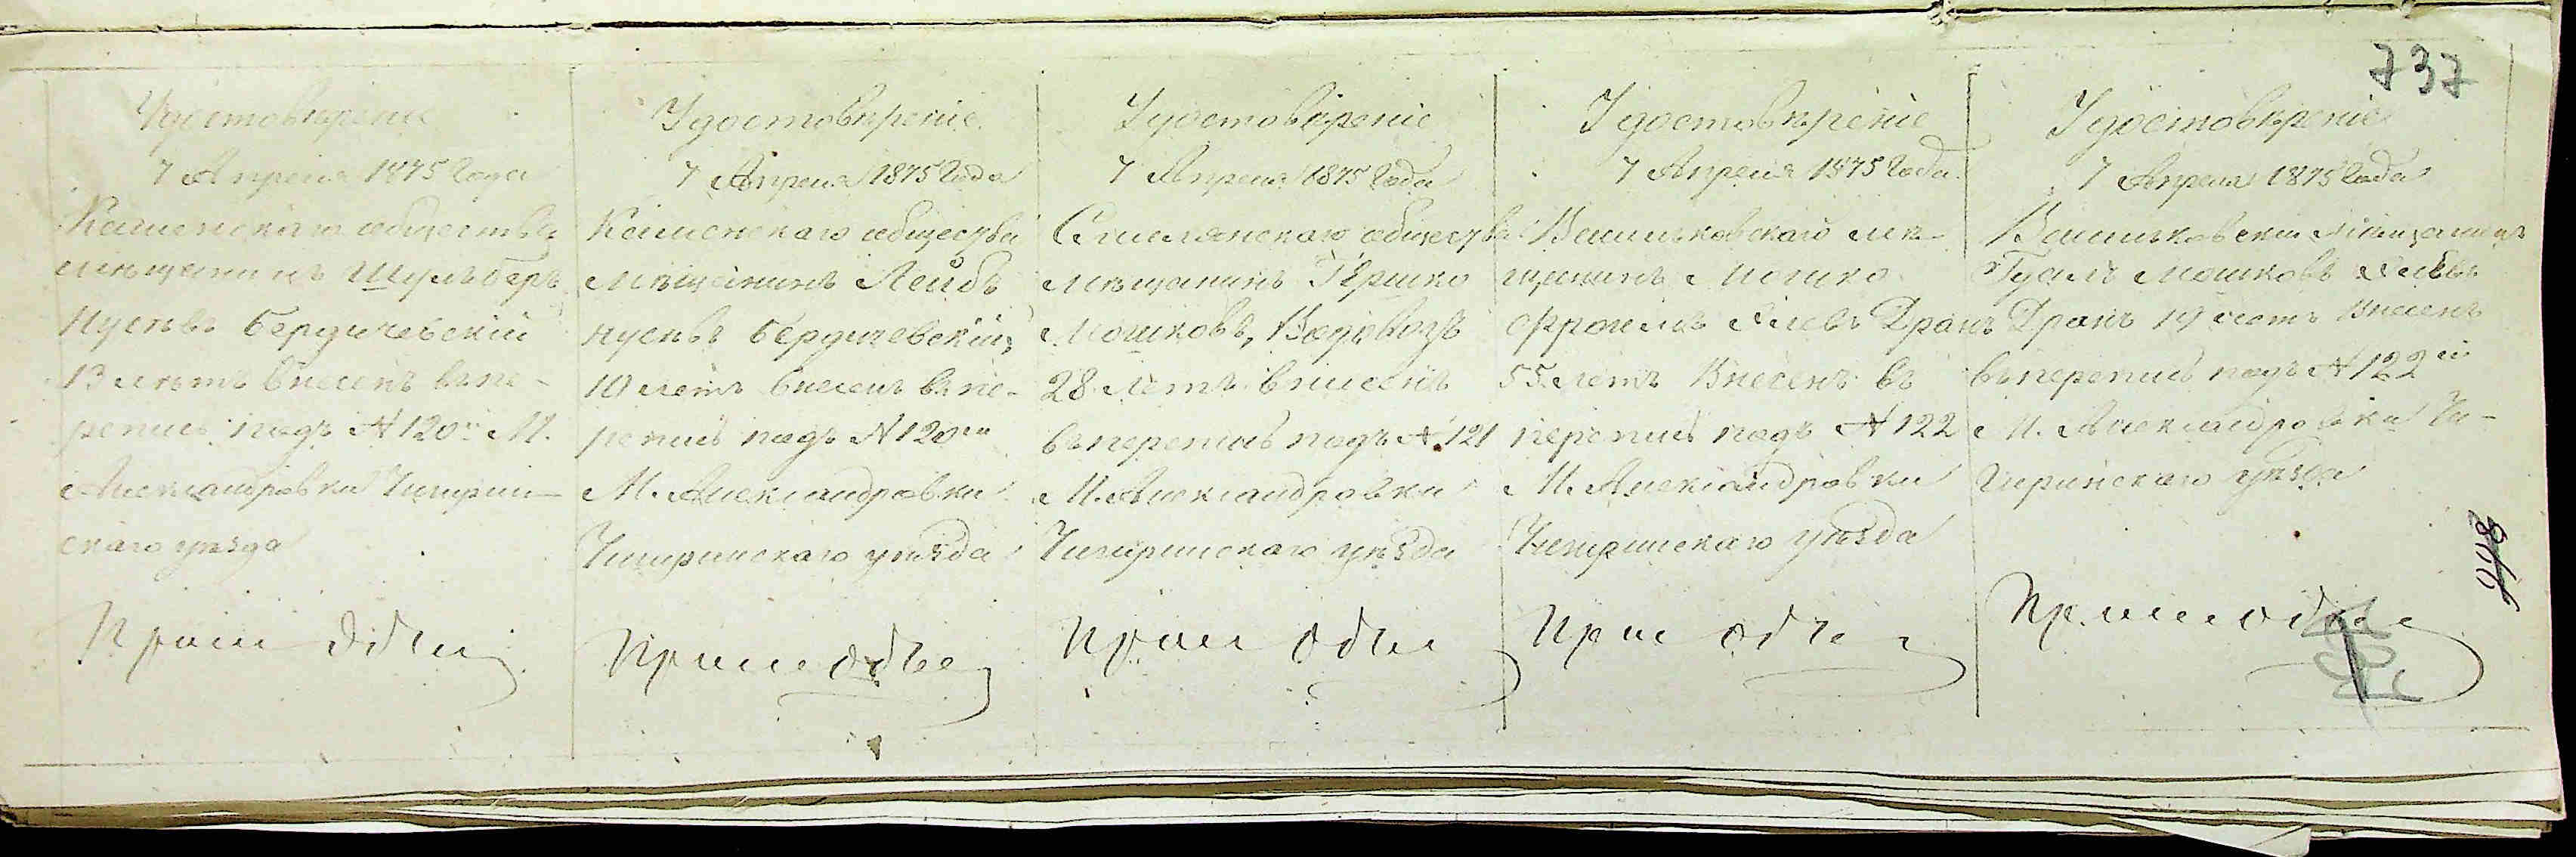 737
Удостовѣреніе
7 Апреля 1875 Года
Каменскаго общества
мѣщанинъ Шульберъ
Нусевъ Бердичевскій
13 летъ внесенъ въ пе-
репись подъ № 120й М.
Александровки Чигрин-
скаго уѣзда
Удостовѣреніе
7 Апреля 1875 Года
Каменскаго общества
мѣщанинъ Лейбъ
Нусевъ Бердичевскій,
10 летъ внесенъ въ пе-
репись подъ № 120й
М. Александровки
Чигринскаго уѣзда
Удостовѣреніе
7 Апреля 1875 Года
Смелянскаго общества
мѣщанинъ Гершко
Мошковъ, Водовозъ
28 летъ внесенъ
въ перепись подъ № 121
М. Александровки
Чигиринскаго уѣзда
Удостовѣреніе
7 Апреля 1875 Года
Васильковскаго мѣ-
щанинъ Мошко
Фроимъ Драпъ
55 летъ Внесенъ въ
перепись подъ № 122
М. Александровки
Чигринскаго уѣзда
Удостовѣреніе
7 Апреля 1875 Года
Васильковскій Мѣщанинъ
Мошковъ
Драпъ 19 летъ Внесенъ
въ перепись подъ № 122й
М. Александровки Чи-
гиринскаго уѣзда